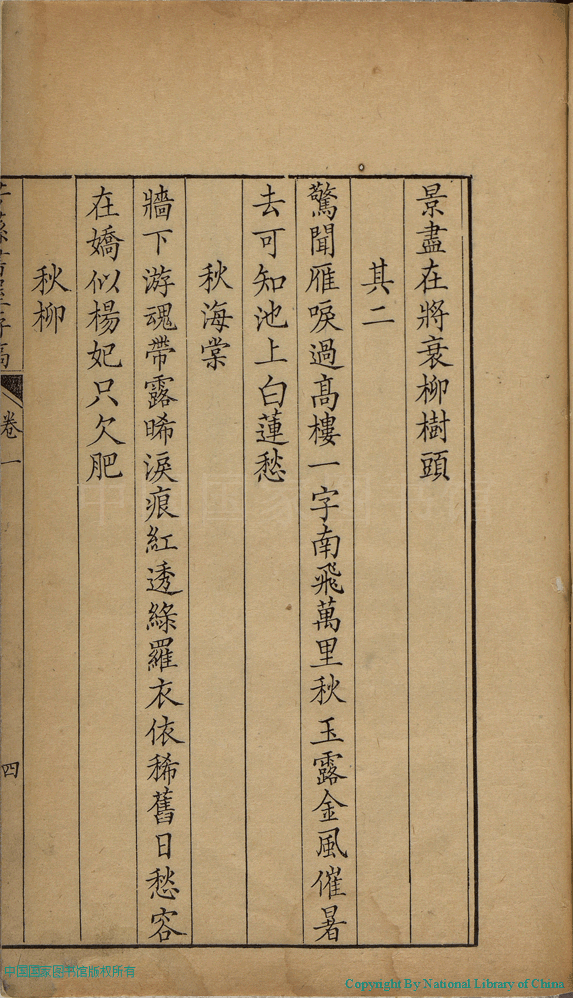 景盡在將衰柳樹頭
其二
驚聞雁唳過高樓一字南飛萬里秋玉露金風催暑
去可知池上白蓮愁
秋海棠
牆下游魂帶露晞淚痕紅透綠羅衣依稀舊日愁容
在嬌似楊妃只欠肥
秋柳
卷一
四
中国国家图书馆
中国国家图书馆版权所有
Copyright By National Library of China